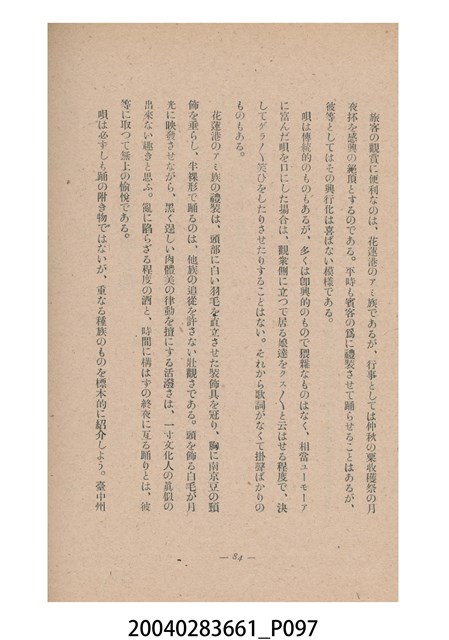 旅客の觀賞に便利なのは、花蓮港のアミ族であるが、行事としては仲秋の粟收穫祭の月
夜抔を感興の絶頂とするのである。平時も賓客の爲に禮裝させて踊らせることはあるが、
彼等としてはその興行化は喜ばない模樣である。
唄は傳統的のものもあるが、多くは卽興的のもので猥雜なものはなく、相當ユーモーア
に富んだ唄を口にした場合は、觀衆側に立つて居る娘達をクス〳〵と云はせる程度で、決
してゲラ〳〵笑ひをしたりさせたりすることはない。それから歌詞がなくて掛聲ばかりの
ものもある。
花蓮港のアミ族の禮裝は、頭部に白い羽毛を直立させた裝飾具を冠り、胸に南京豆の頸
飾を垂らし、半裸形で踊るのは、他族の追從を許さない壯觀さである。頭を飾る白毛が月
光に映發させながら、黑く逞しい肉體美の律動を擅にする活潑さは、一寸文化人の眞似の
出來ない趣きと思ふ。亂に陷らざる程度の酒と、時間に構はずの終夜に亙る踊りとは、彼
等に取つて無上の愉悅である。
唄は必ずしも踊の附き物ではないが、重なる種族のものを標本的に紹介しよう。臺中州
— 84 —
20040283661_P097